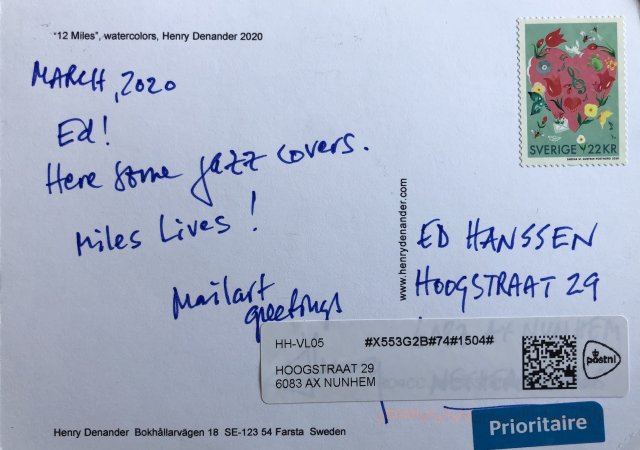 "12 Miles", watercolors, Henry Denander 2020
MARCH, 2020
Ed!
Here some jazz covers.
Miles Lives!
Mailart
greetings
www.henrydenander.com
SVERIGE 22 KR
ED HANSSEN
HOOGSTRAAT 29
HH-VL05 #X553G2B#74#1504#
HOOGSTRAAT 29
6083 AX NUNHEM
postnl
Prioritaire
Henry Denander Bokhållarvägen 18 SE-123 54 Farsta Sweden